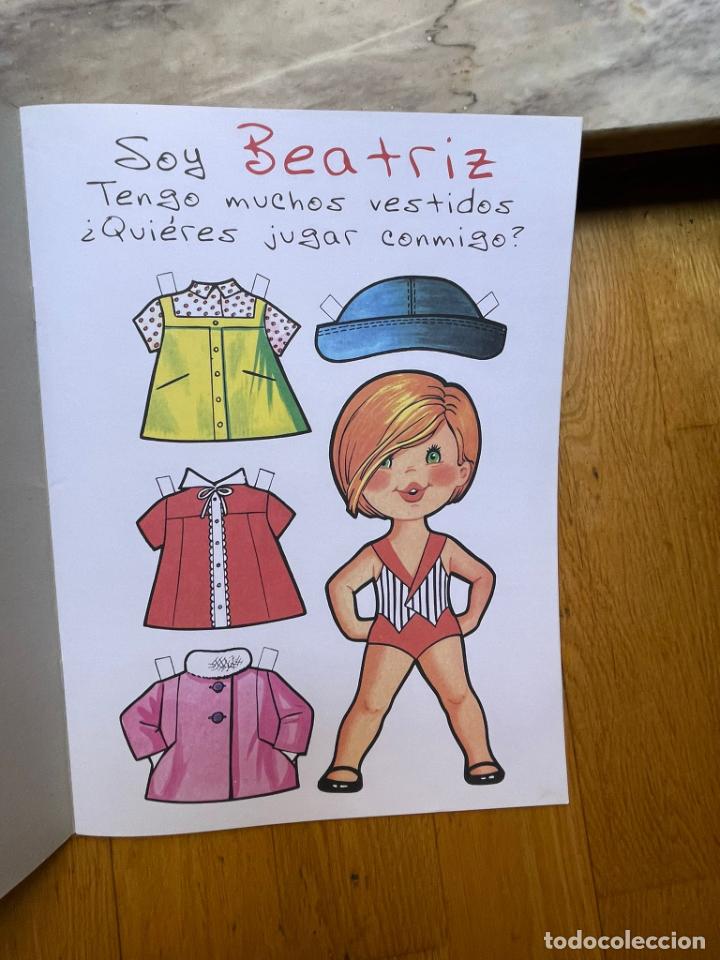 Soy Beatriz
Tengo muchos vestidos
¿Quiéres jugar conmigo?
todocoleccion